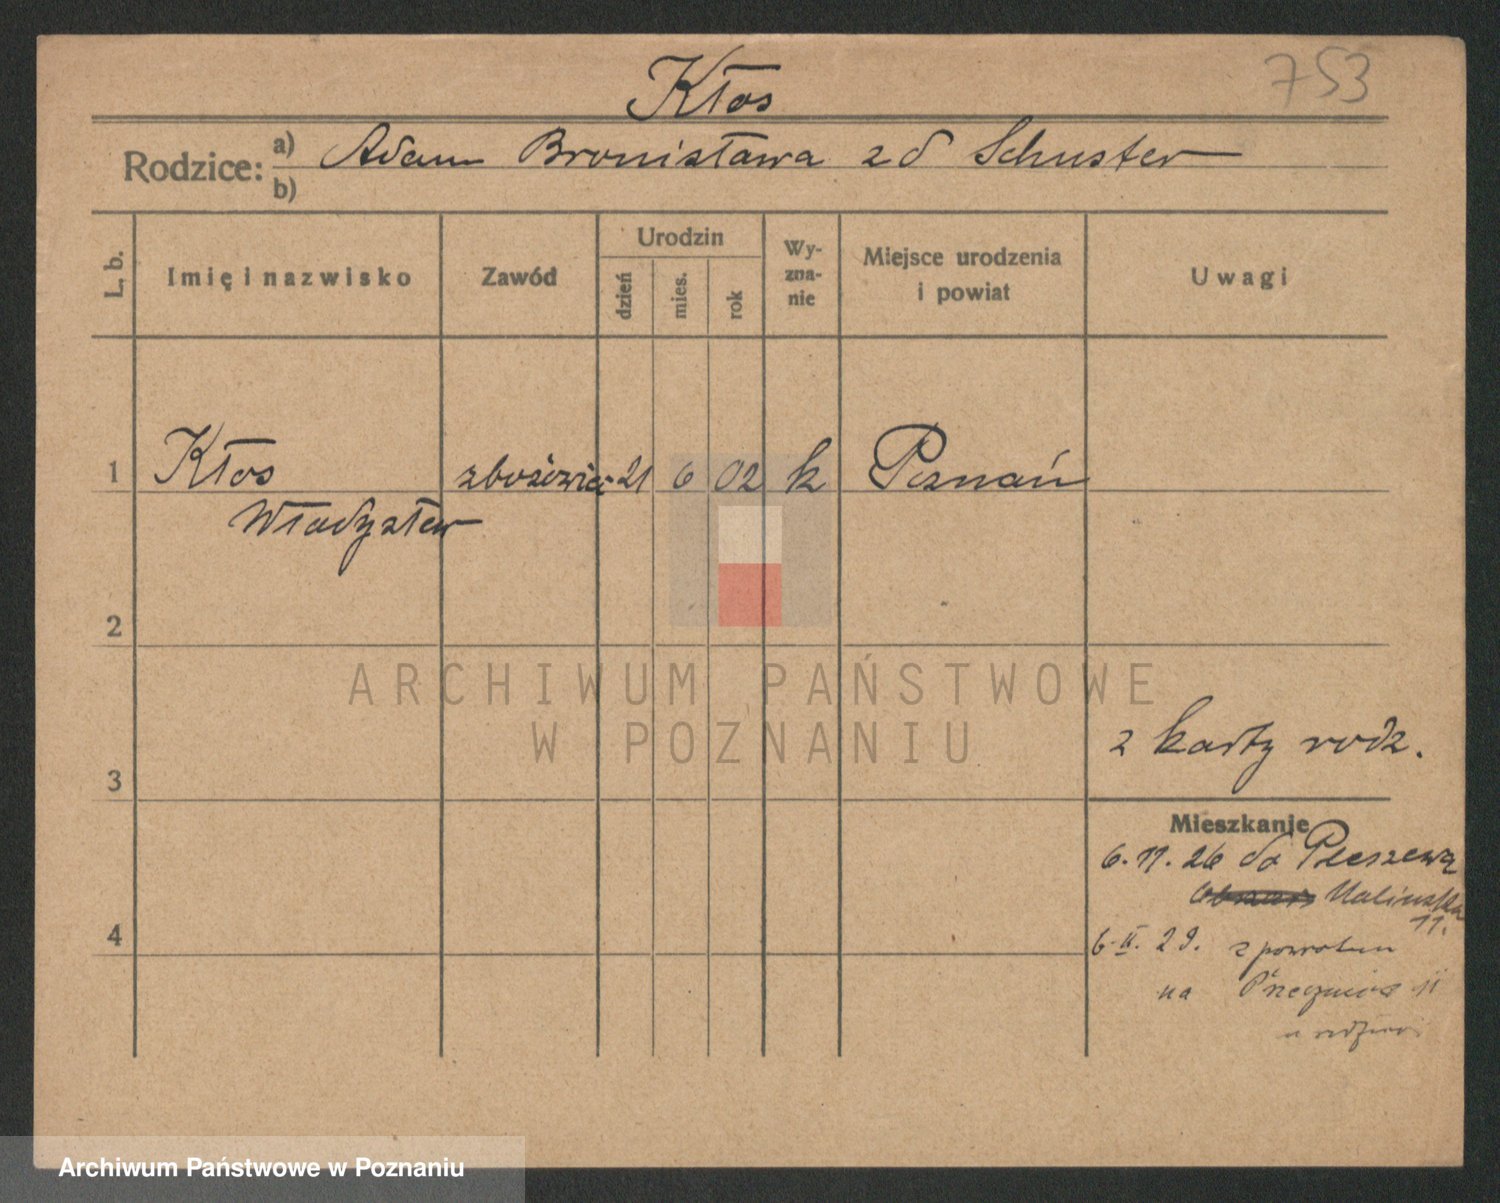 753
Kłos
Rodzice: a) Adam Bronisława zd Schuster
b)
L. b.
Imię i nazwisko
Zawód
Urodzin
dzień
mies.
rok
Wy-
zna-
nie
Miejsce urodzenia
i powiat
Uwagi
1 Kłos 21 6 02 k Poznań
Władysław
2
3
z karty rodz.
Mieszkanie
6. 11. 26 do Pleszewa
11.
4
6. II. 29. z powrotem
na 11
u
ARCHIWUM PAŃSTWOWE
W POZNANIU
Archiwum Państwowe w Poznaniu